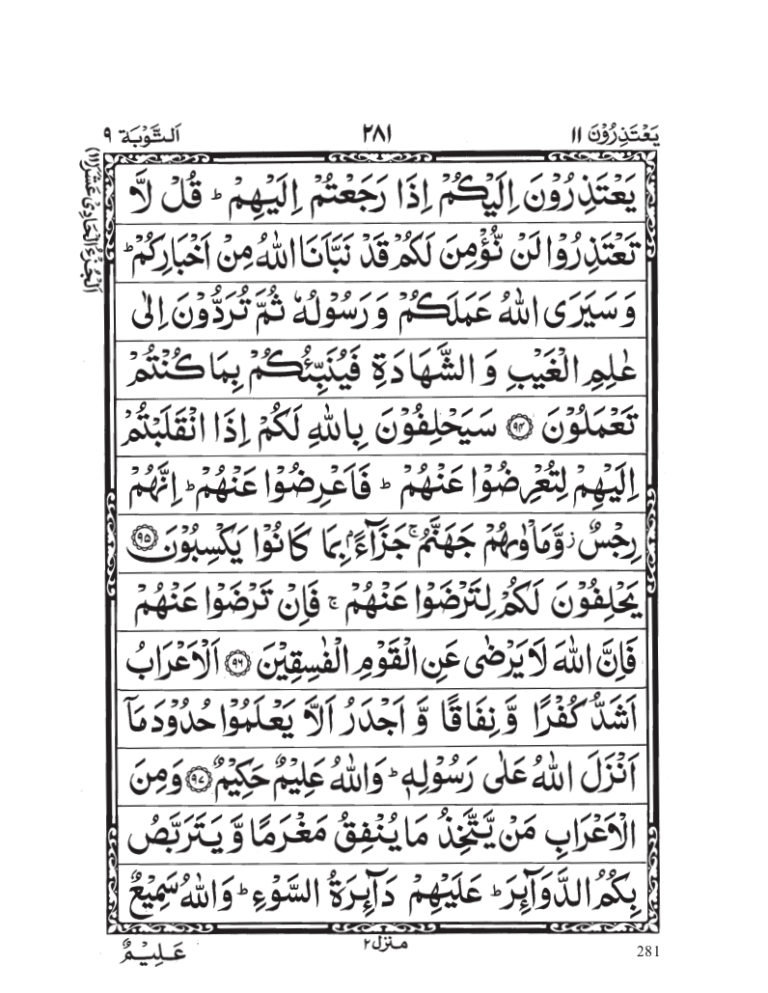 يَعْتَذِرُوْنَ ١١ ٢٨١ اَلتَّوْبَة ٩
اَلْجُزْءُ الْحَادِیْ عَشَرَ (١١)
يَعْتَذِرُوْنَ اِلَيْكُمْ اِذَا رَجَعْتُمْ اِلَيْهِمْ ؕ قُلْ لَّا
تَعْتَذِرُوْا لَنْ نُّؤْمِنَ لَكُمْ قَدْ نَبَّاَنَا اللّٰهُ مِنْ اَخْبَارِكُمْ ؕ
وَ سَيَرَى اللّٰهُ عَمَلَكُمْ وَ رَسُوْلُهٗ ثُمَّ تُرَدُّوْنَ اِلٰى
عٰلِمِ الْغَيْبِ وَ الشَّهَادَةِ فَيُنَبِّئُكُمْ بِمَا كُنْتُمْ
تَعْمَلُوْنَ ﴿٩٤﴾ سَيَحْلِفُوْنَ بِاللّٰهِ لَكُمْ اِذَا انْقَلَبْتُمْ
اِلَيْهِمْ لِتُعْرِضُوْا عَنْهُمْ ؕ فَاَعْرِضُوْا عَنْهُمْ ؕ اِنَّهُمْ
رِجْسٌ ؗ وَّمَاْوٰىهُمْ جَهَنَّمُ ۚ جَزَآءًۢ بِمَا كَانُوْا يَكْسِبُوْنَ ﴿٩٥﴾
يَحْلِفُوْنَ لَكُمْ لِتَرْضَوْا عَنْهُمْ ۚ فَاِنْ تَرْضَوْا عَنْهُمْ
فَاِنَّ اللّٰهَ لَا يَرْضٰى عَنِ الْقَوْمِ الْفٰسِقِيْنَ ﴿٩٦﴾ اَلْاَعْرَابُ
اَشَدُّ كُفْرًا وَّ نِفَاقًا وَّ اَجْدَرُ اَلَّا يَعْلَمُوْا حُدُوْدَ مَاۤ
اَنْزَلَ اللّٰهُ عَلٰى رَسُوْلِهٖ ؕ وَاللّٰهُ عَلِيْمٌ حَكِيْمٌ ﴿٩٧﴾ وَمِنَ
الْاَعْرَابِ مَنْ يَّتَّخِذُ مَا يُنْفِقُ مَغْرَمًا وَّ يَتَرَبَّصُ
بِكُمُ الدَّوَآئِرَ ؕ عَلَيْهِمْ دَآئِرَةُ السَّوْءِ ؕ وَاللّٰهُ سَمِيْعٌ
عَلِيْمٌ
منزل ٢
281